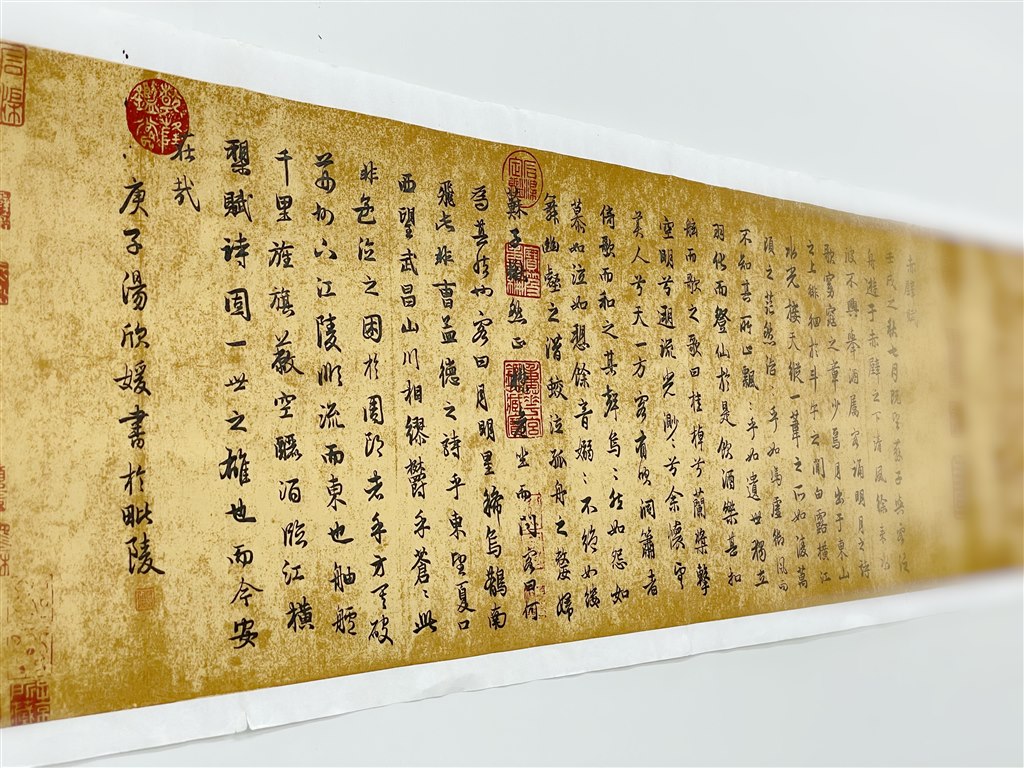 赤壁賦
壬戌之秋七月既望蘇子與客泛
舟遊于赤壁之下清風徐來水
波不興舉酒屬客誦明月之詩
歌窈窕之章少焉月出于東山
之上徘徊於斗牛之間白露橫江
水光接天縱一葦之所如凌萬
頃之茫然浩〻乎如馮虛御風而
不知其所止飄〻乎如遺世獨立
羽化而登仙於是飲酒樂甚扣
舷而歌之歌曰桂棹兮蘭槳擊
空明兮遡流光渺〻兮余懷望
美人兮天一方客有吹洞簫者
倚歌而和之其聲烏〻然如怨如
慕如泣如愬餘音嫋〻不絕如縷
舞幽壑之潛蛟泣孤舟之嫠婦
蘇子愀然正襟危坐而問客曰何
為其然也客曰月明星稀烏鵲南
飛此非曹孟德之詩乎東望夏口
西望武昌山川相繆鬱乎蒼〻此
非之困於周郎者乎方其破
荊州下江陵順流而東也舳艫
千里旌旗蔽空釃酒臨江橫
槊賦詩固一世之雄也而今安
在哉
庚子湯欣媛書於毗陵